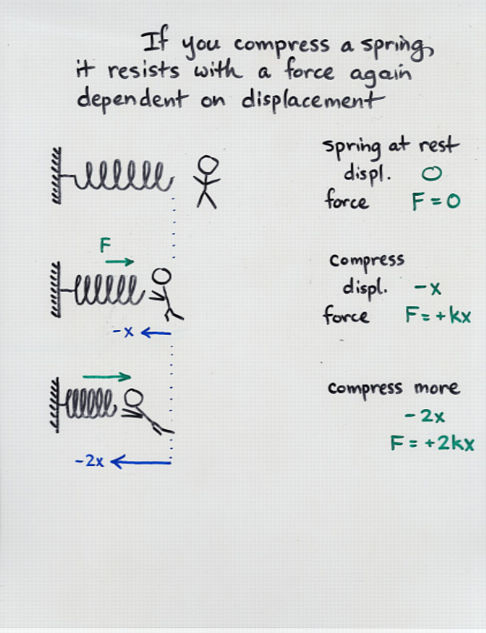 If you compress a spring,
it resists with a force again
dependent on displacement
spring at rest
displ. 0
force F = 0
F
compress
displ. -x
force F = +kx
-x
compress more
-2x
F = +2kx
-2x